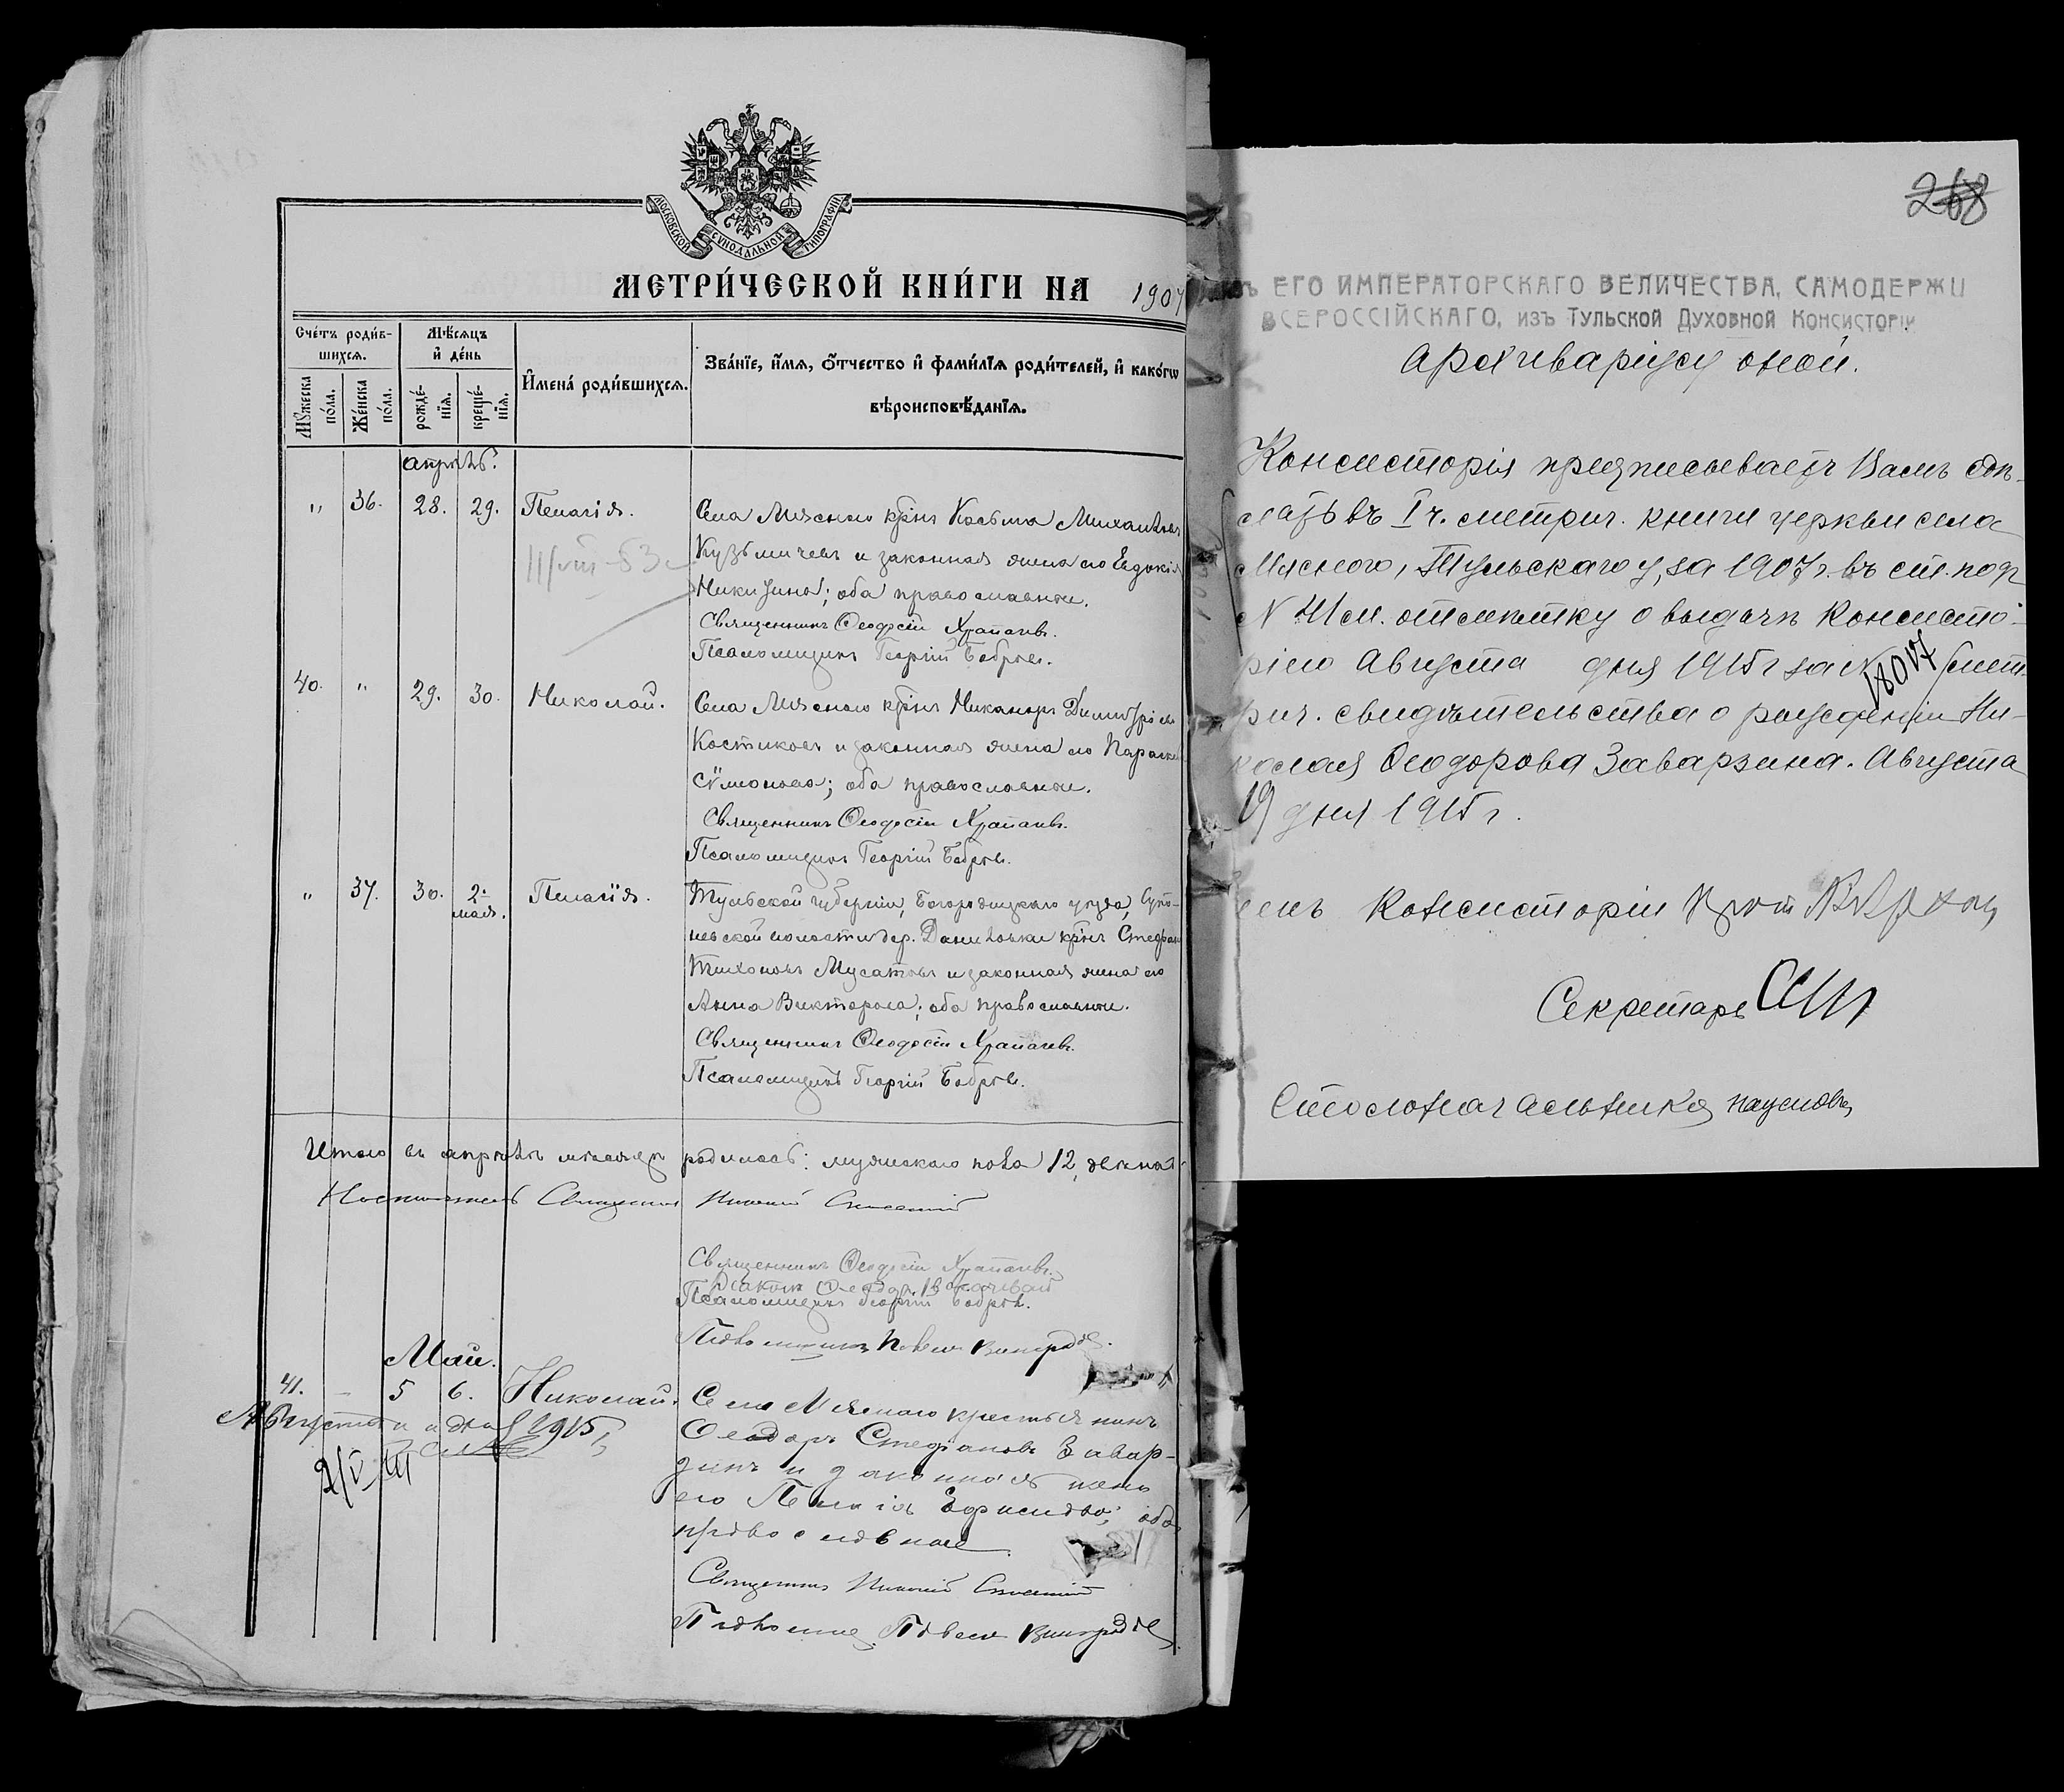 МОСКОВСКОЙ СУНОДАЛЬНОЙ ТИПОГРАФІИ
МЕТРИ́ЧЕСКОЙ КНИ́ГИ НА 1907
Сче́тъ роди́в-
шихся.
Мѣ́сяцъ
и҆ де́нь
Мꙋ́жеска по́ла.
Же́нска по́ла.
рожде́-
нїѧ.
креще́-
нїѧ.
И҆мена̀ роди́вшихсѧ.
Зва́нїе, и҆́мѧ, ѻ҆́тчество и҆ фами́лїѧ роди́телей, и҆ како́гѡ
вѣроисповѣ́данїѧ.
Апрѣль.
" 36. 28. 29. Пелагія. Села Мяснаго крнъ Косьма Михаиловъ
Кузьмичевъ и законная жена его Евдокія
Никитина; оба православные.
Священникъ Ѳеодосій Храпачевъ.
Псаломщикъ Георгій Бобровъ.
11/VIII-53
40. " 29. 30. Николай. Села Мяснаго крнъ Никаноръ Димитріевъ
Костиковъ и законная жена его Параскева
Сѵмонова; оба православные.
Священникъ Ѳеодосій Храпачевъ.
Псаломщикъ Георгій Бобровъ.
" 37. 30. 2. мая. Пелагія. Тульской губерніи, Богородицкаго уѣзда,
волости дер. Даниловки крнъ Стефанъ
Тихоновъ Мусатовъ и законная жена его
Анна Викторова; оба православные.
Священникъ Ѳеодосій Храпачевъ.
Псаломщикъ Георгій Бобровъ.
Итого въ апрѣлѣ мѣсяцѣ родилось: мужескаго пола 12,
Священникъ
Священникъ Ѳеодосій Храпачевъ.
Псаломщикъ Георгій Бобровъ.
Псаломщикъ Павелъ Виноградовъ.
Май.
41. – 5 6. Николай. Села Мяснаго крестьянинъ
Ѳеодоръ Стефановъ Завар-
зинъ и законная жена
его Пелагія оба
православные
Августа дня 1915 г.
Священникъ
Псаломщикъ Павелъ Виноградовъ.
268
ЕГО ИМПЕРАТОРСКАГО ВЕЛИЧЕСТВА, САМОДЕРЖЦ
ВСЕРОССІЙСКАГО, изъ Тульской Духовной Консисторіи
Архиваріусу оной.
Консисторія предписываетъ Вамъ сдѣ-
лать въ I ч. метрич. книги церкви села
Мяснаго, Тульскаго у, за 1907 г. въ ст. подъ
N 41 м. отмѣтку о выдачѣ Консисто-
ріею Августа дня 1915 г за N 18017 мет-
рич. свидѣтельства о рожденіи Ни-
колая Ѳеодорова Заварзина. Августа
19 дня 1915 г.
Членъ Консисторіи Прот
Секретарь
Столоначальникъ Наумовъ